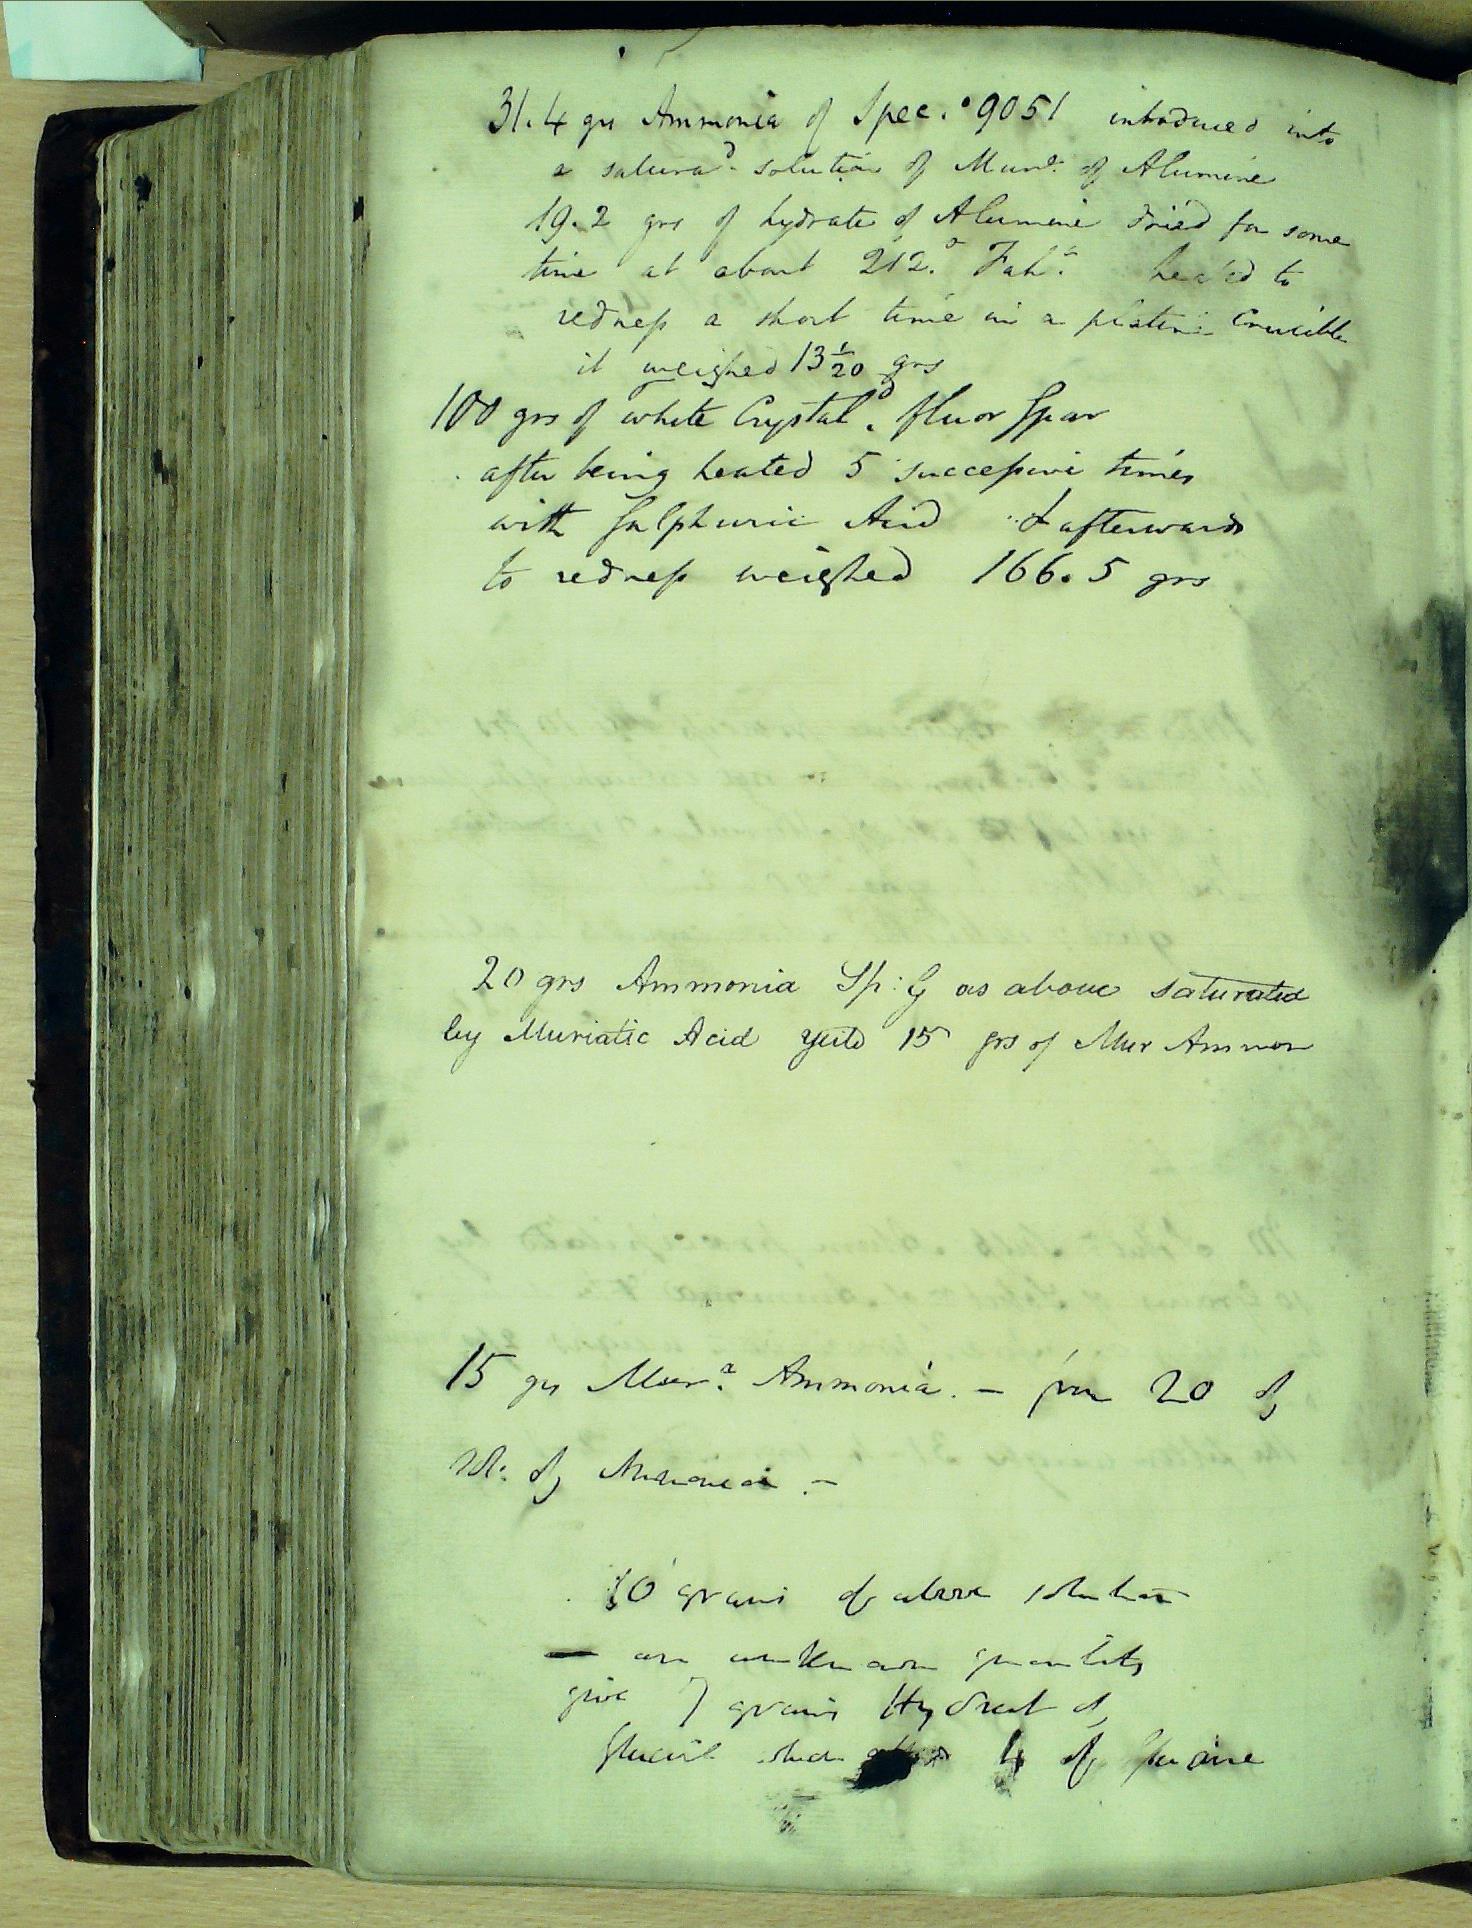 31.4 grs Ammonia of Spec. .9051 introduced into
a satura.d solution of Mur.e of Alumine
19.2 grs of hydrate of Alumine dried for some
time at about 212.° Fah.t heated to
redness a short time in a platina Crucible
it weighed 13 1/20 grs
100 grs of white Crystal.d fluor Spar
after being heated 5 successive times
with Sulphuric Acid & afterwards
to redness weighed 166.5 grs
20 grs Ammonia Sp: G as above saturated
by Muriatic Acid yeild 15 grs of Mur Ammon
15 grs Mur.a Ammonia. — from 20 of
Sol: of Ammonia. —
10 grains of above solution
— an unknown quantity
give 7 grains Hydrat of
Glucine 4 of